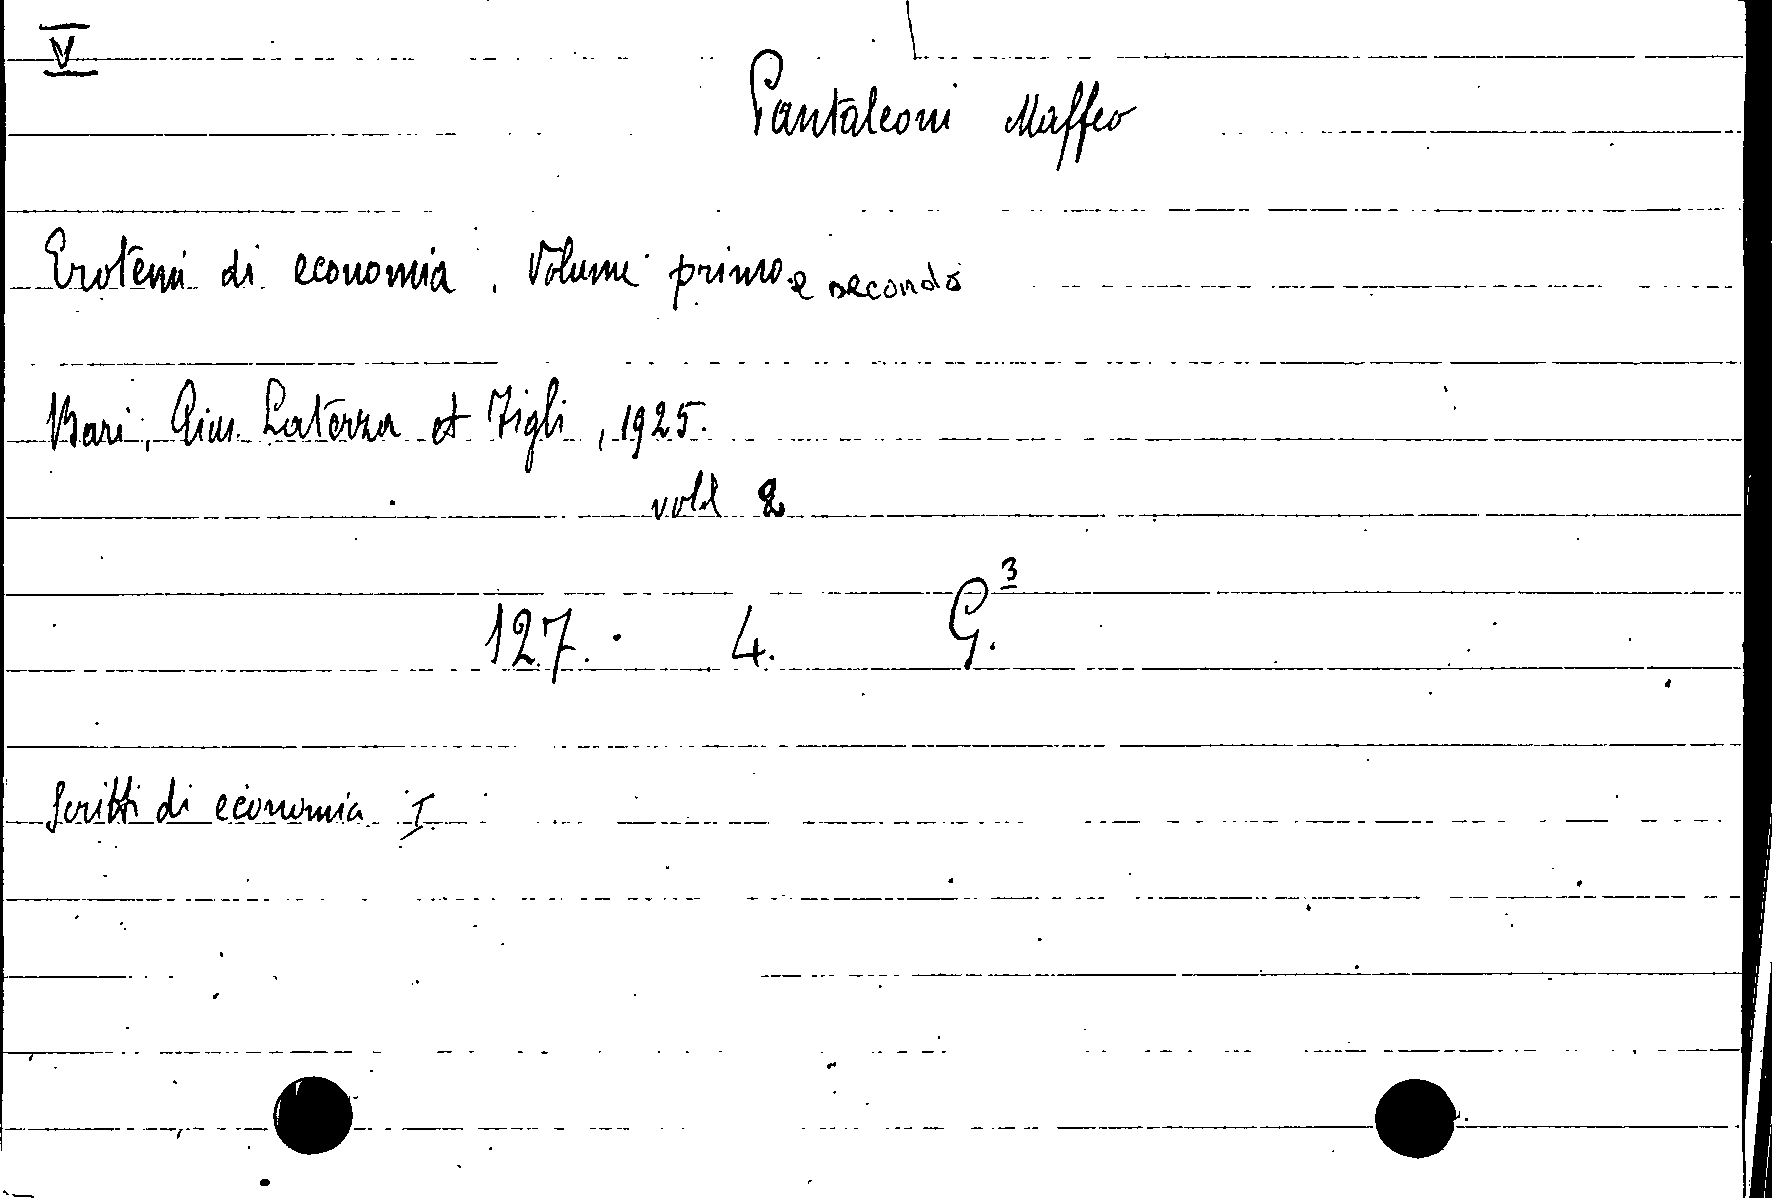 V
Pantaleoni Maffeo
Erotemi di economia. Volume primo e secondo
Bari, Gius. Laterza et Figli, 1925.
voll 2
127. 4. G.3
Scritti di economia I.